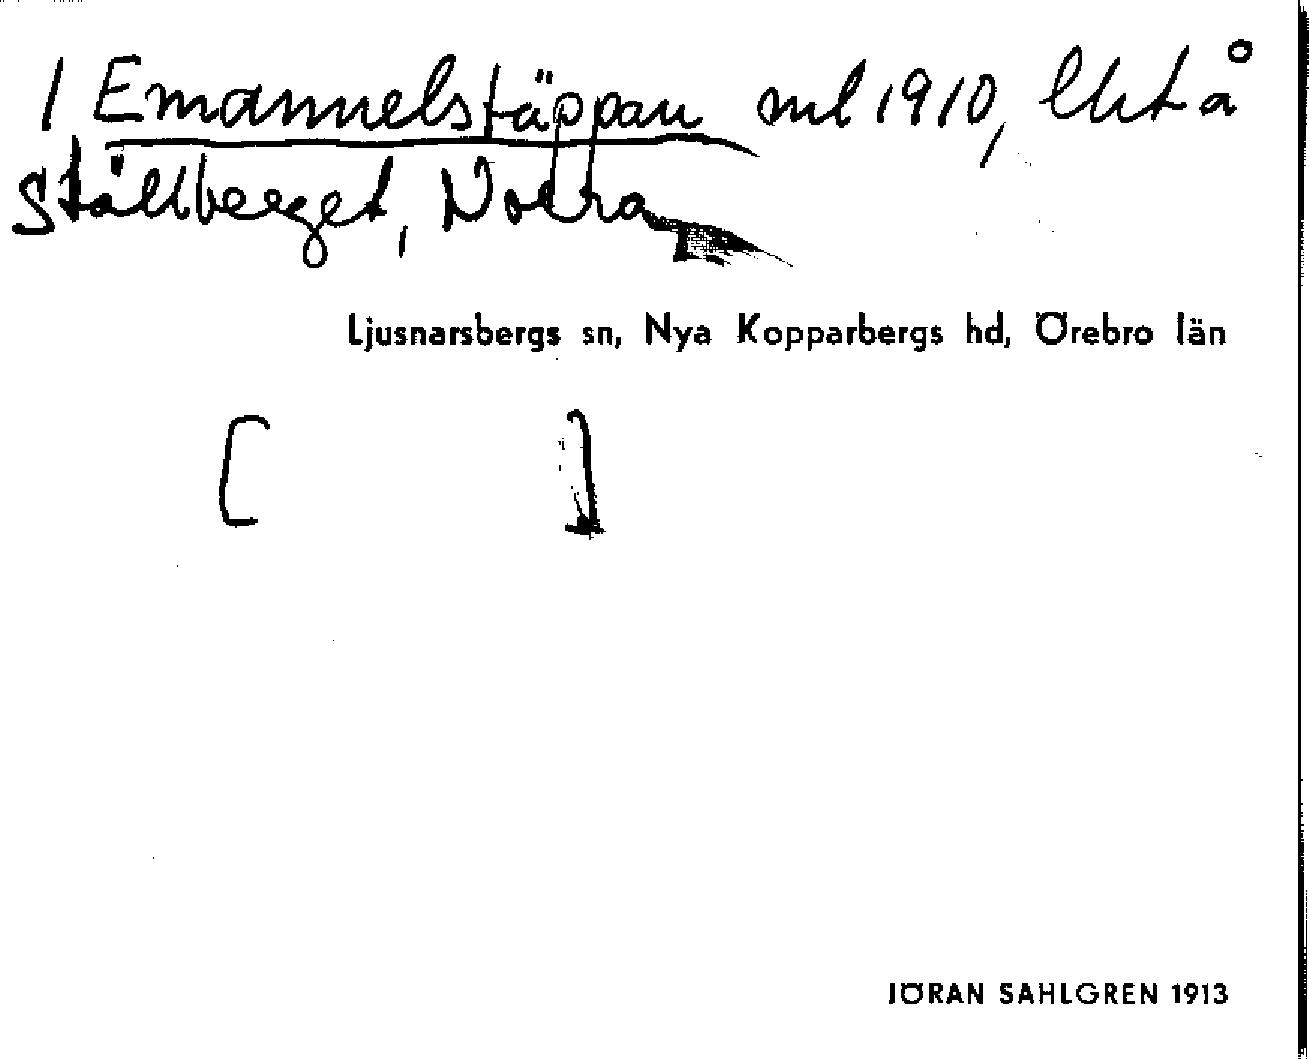 / Emanuelstäppan ml 1910, lht å
Ställberget, Norra
Ljusnarsbergs sn, Nya Kopparbergs hd, Örebro län
[ ]
JÖRAN SAHLGREN 1913